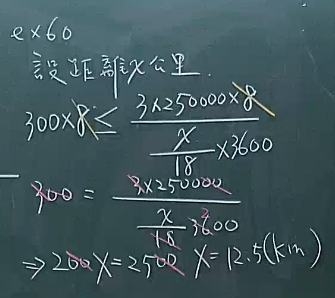 ex60
設距離x公里.
300×8 ≤ 3×250000×8 / (x/18 ×3600)
300 = 3×250000 / (x/18 3600)
⇒ 200X=2500 X=12.5(km)